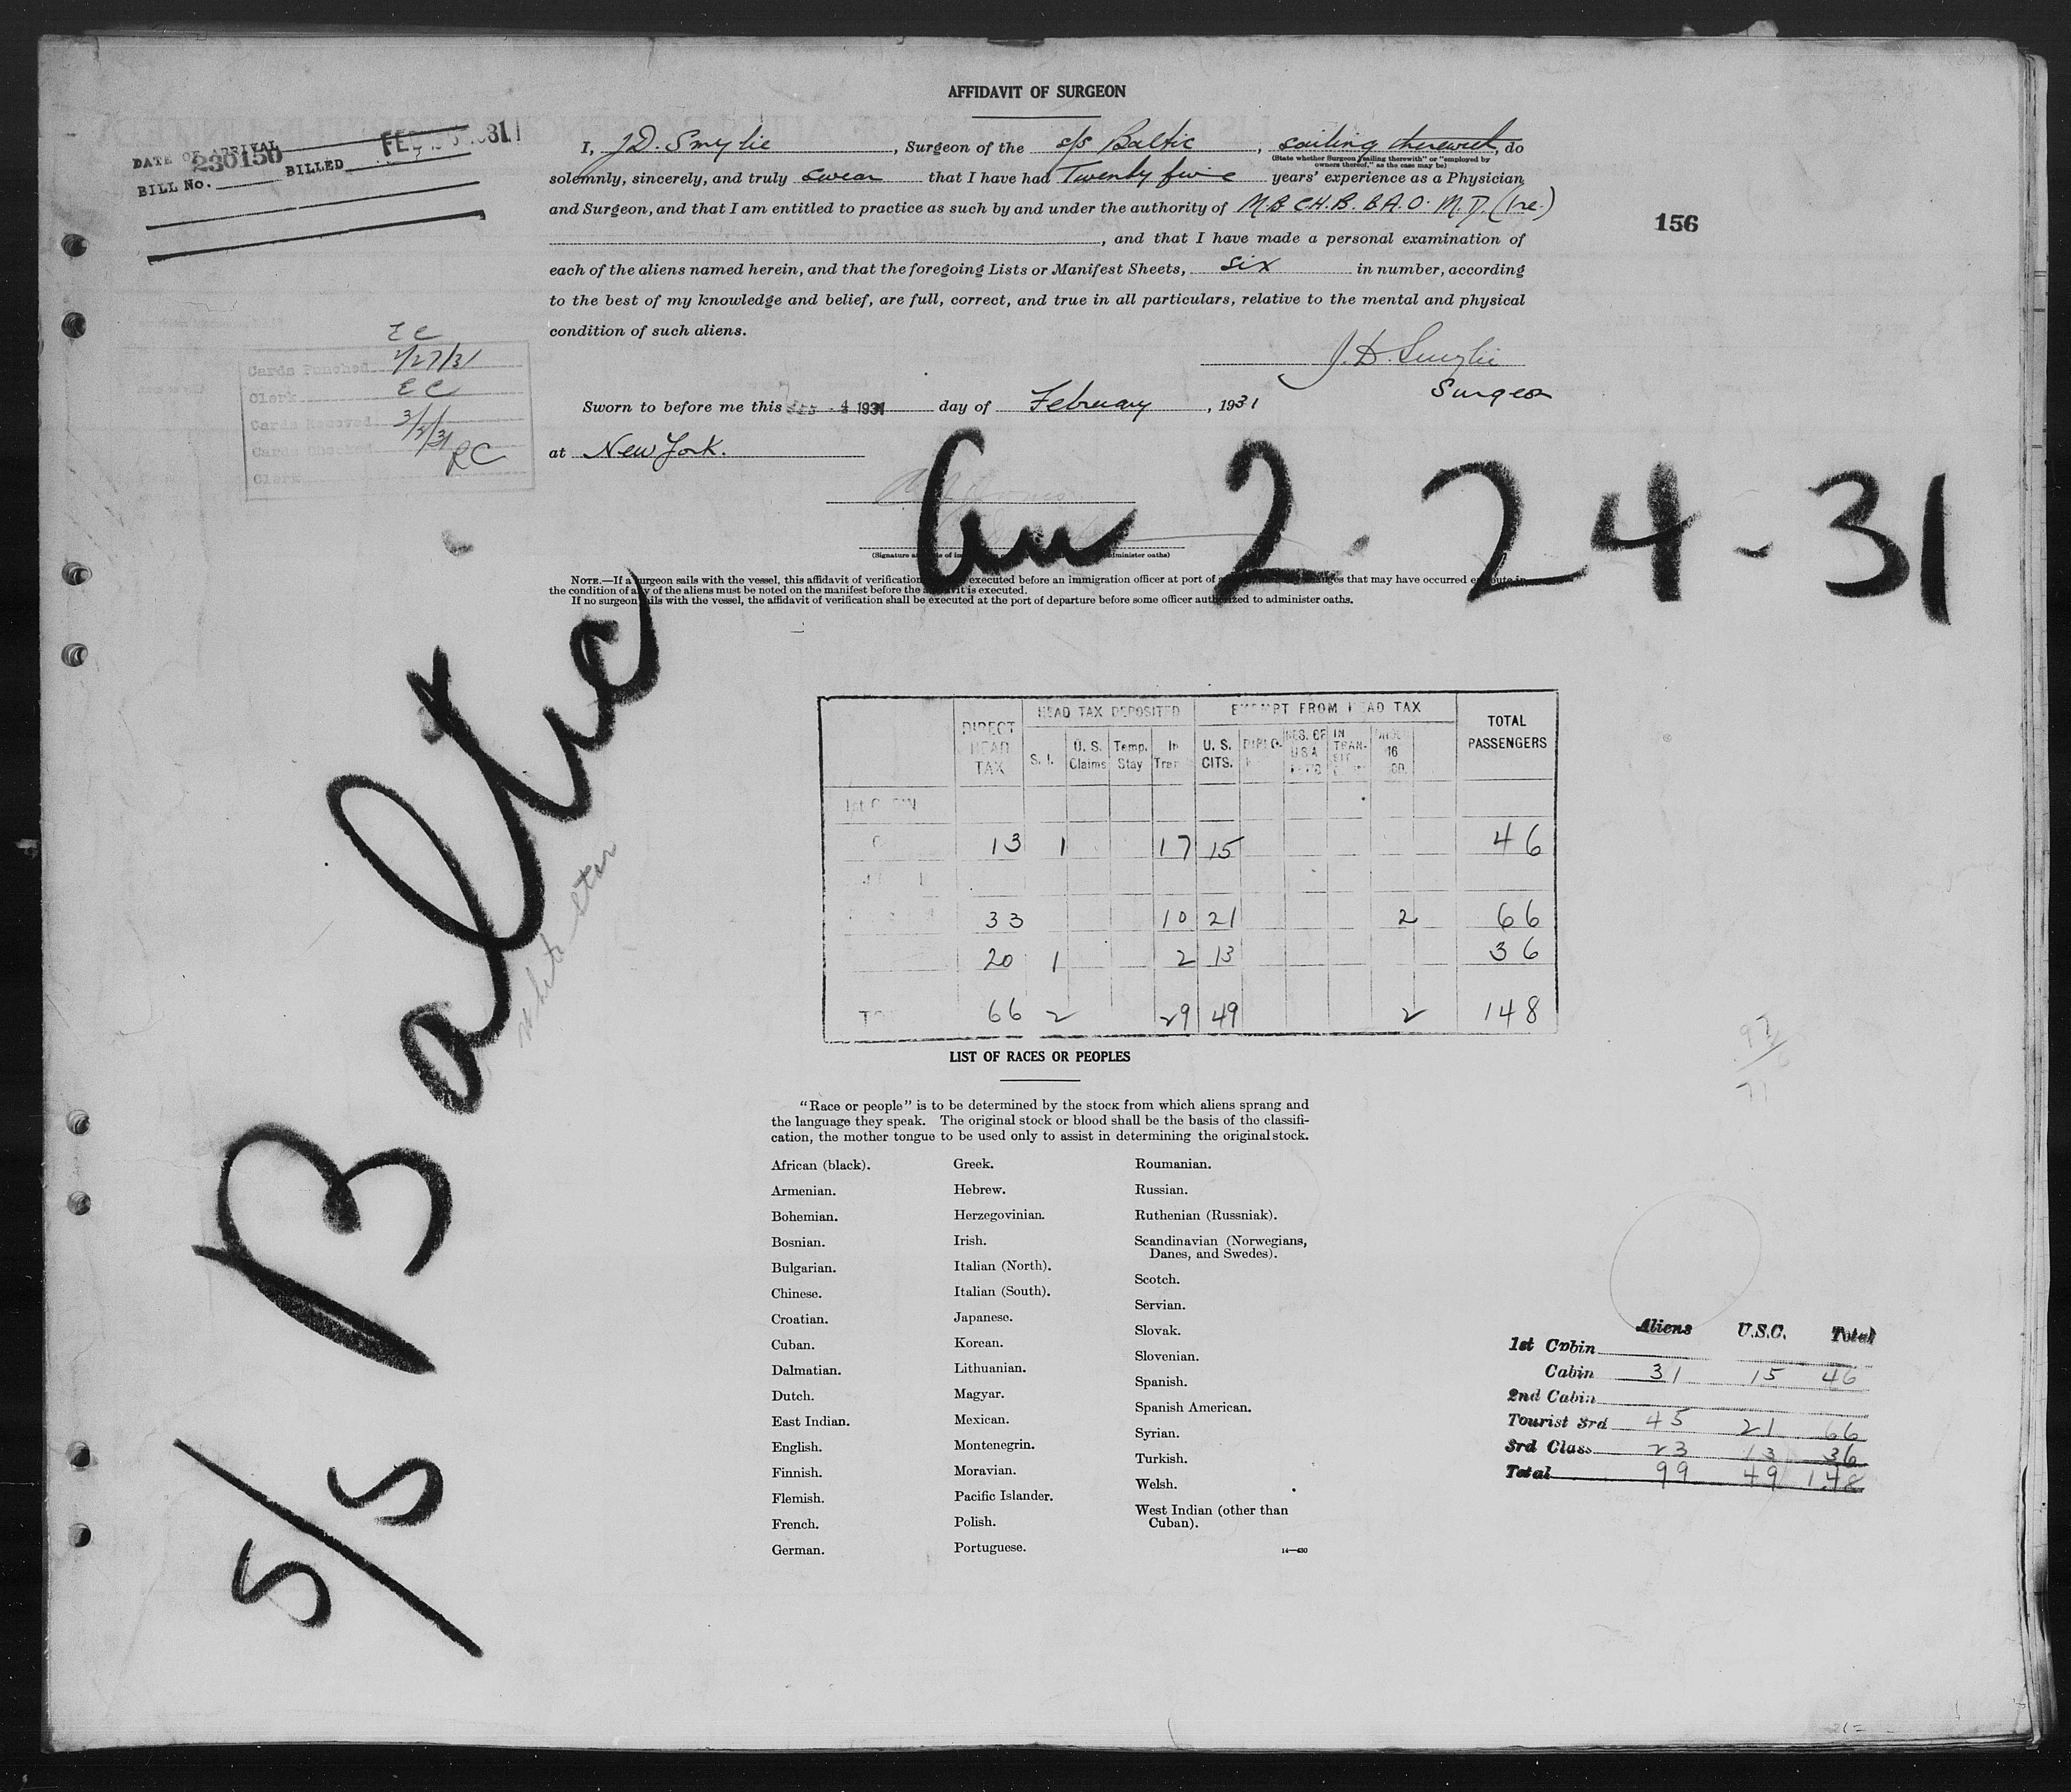 AFFIDAVIT OF SURGEON
DATE OF ARRIVAL
230150
BILL No. BILLED
I, J.D. Smylie, Surgeon of the s/s Baltic, sailing therewith, do
(State whether Surgeon "sailing therewith" or "employed by
owners thereof," as the case may be)
solemnly, sincerely, and truly swear that I have had Twenty five years' experience as a Physician
and Surgeon, and that I am entitled to practice as such by and under the authority of M.B. C.H.B. B.A.O. M.D. (Ire.)
, and that I have made a personal examination of
156
each of the aliens named herein, and that the foregoing Lists or Manifest Sheets, six in number, according
to the best of my knowledge and belief, are full, correct, and true in all particulars, relative to the mental and physical
condition of such aliens.
J. D. Smylie
Surgeon
EC
Cards Punched 2/27/31
Clerk EC
Cards Received
Cards Checked
Clerk RC
Sworn to before me this day of February, 1931
at New York.
2-24-31
(Signature
administer oaths)
NOTE.—If a surgeon sails with the vessel, this affidavit of verification executed before an immigration officer at port of that may have occurred en route in
the condition of any of the aliens must be noted on the manifest before the affidavit is executed.
If no surgeon sails with the vessel, the affidavit of verification shall be executed at the port of departure before some officer authorized to administer oaths.
S/S Baltic
White Star
DIRECT HEAD TAX
HEAD TAX DEPOSITED
EXEMPT FROM HEAD TAX
TOTAL PASSENGERS
S. I. U. S. Claims Temp. Stay In Tran U. S. CITS. DIPLO- RES. OF U.S.A IN TRAN- SIT UNDER 16
1st CABIN
13 1 17 15 46
33 10 21 2 66
20 1 2 13 36
66 2 29 49 2 148
LIST OF RACES OR PEOPLES
"Race or people" is to be determined by the stock from which aliens sprang and
the language they speak. The original stock or blood shall be the basis of the classifi-
cation, the mother tongue to be used only to assist in determining the original stock.
African (black).
Armenian.
Bohemian.
Bosnian.
Bulgarian.
Chinese.
Croatian.
Cuban.
Dalmatian.
Dutch.
East Indian.
English.
Finnish.
Flemish.
French.
German.
Greek.
Hebrew.
Herzegovinian.
Irish.
Italian (North).
Italian (South).
Japanese.
Korean.
Lithuanian.
Magyar.
Mexican.
Montenegrin.
Moravian.
Pacific Islander.
Polish.
Portuguese.
Roumanian.
Russian.
Ruthenian (Russniak).
Scandinavian (Norwegians,
Danes, and Swedes).
Scotch.
Servian.
Slovak.
Slovenian.
Spanish.
Spanish American.
Syrian.
Turkish.
Welsh.
West Indian (other than
Cuban).
14—430
Aliens U.S.C. Total
1st Cabin
Cabin 31 15 46
2nd Cabin
Tourist 3rd 45 21 66
3rd Class 23 13 36
Total 99 49 148